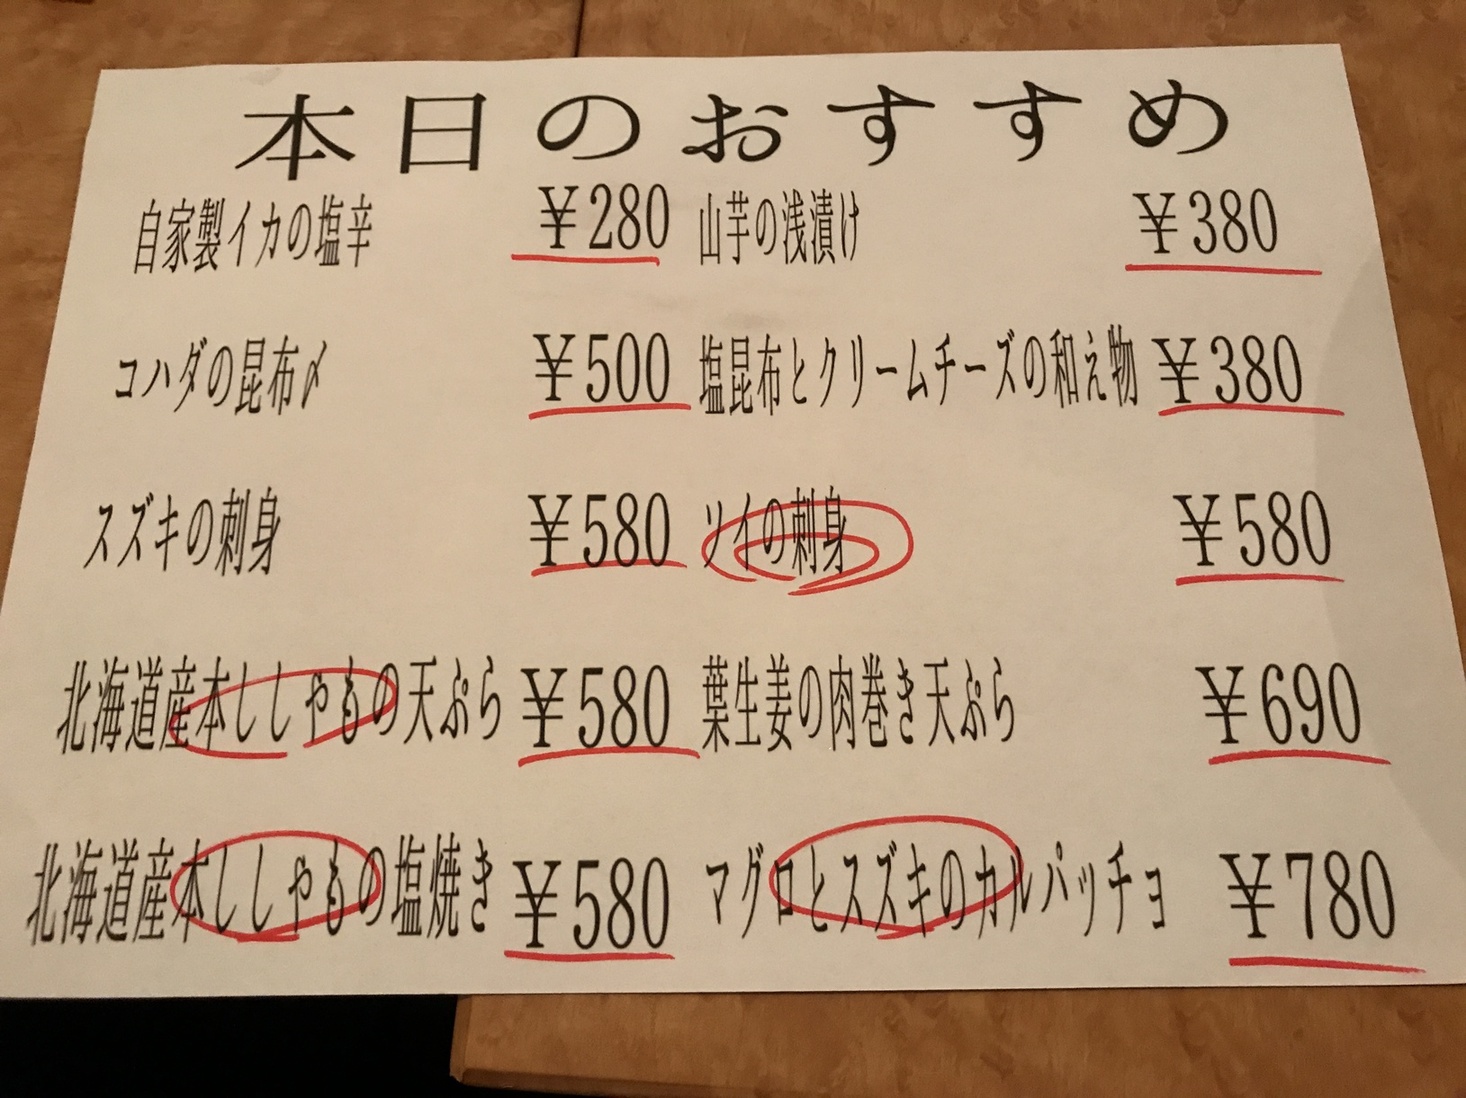 本日のおすすめ
自家製イカの塩辛 ¥280 山芋の浅漬け ¥380
コハダの昆布〆 ¥500 塩昆布とクリームチーズの和え物 ¥380
スズキの刺身 ¥580 ソイの刺身 ¥580
北海道産本ししゃもの天ぷら ¥580 葉生姜の肉巻き天ぷら ¥690
北海道産本ししゃもの塩焼き ¥580 マグロとスズキのカルパッチョ ¥780